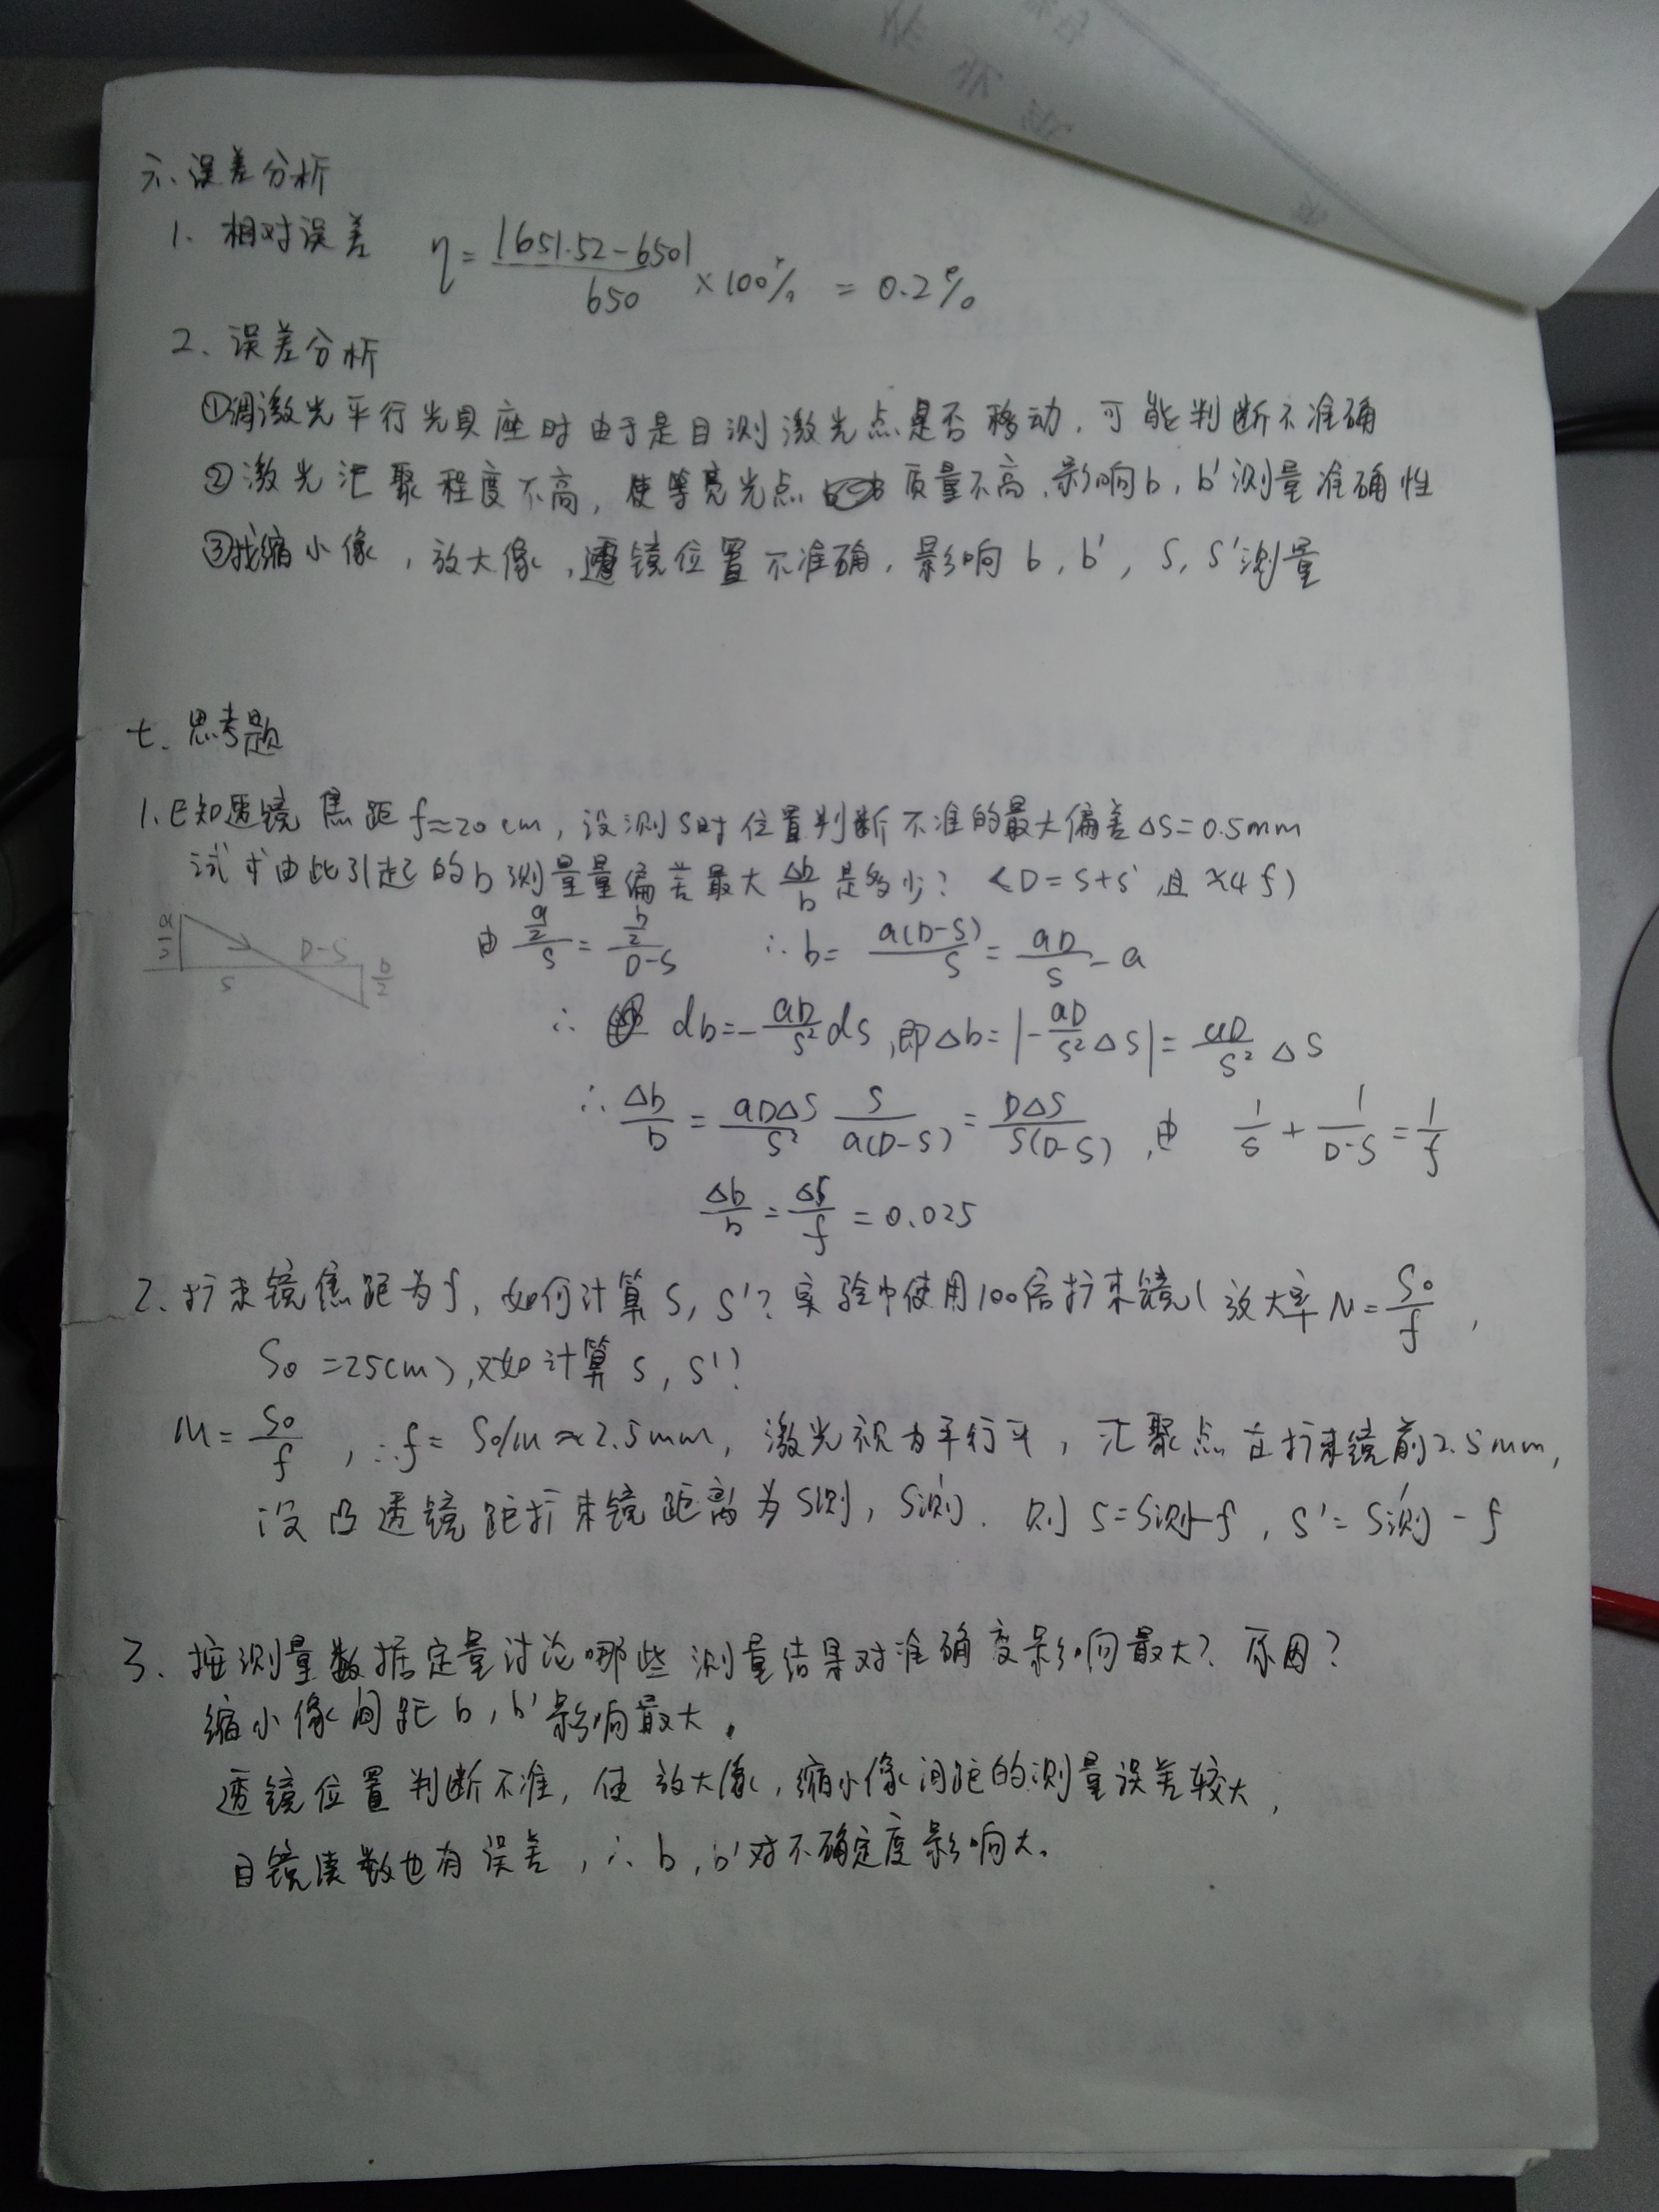 六、误差分析
1、相对误差 η = |651.52-650| / 650 ×100% = 0.2%
2、误差分析
①调激光平行光具座时由于是目测激光点是否移动，可能判断不准确
②激光汇聚程度不高，使等亮光点质量不高，影响b，b'测量准确性
③找缩小像，放大像，透镜位置不准确，影响b，b'，S，S'测量
七、思考题
1、已知透镜焦距f≈20cm，设测S时位置判断不准的最大偏差ΔS=0.5mm
试求由此引起的b测量量偏差最大 Δb/b 是多少？（D=S+S' 且≈4f）
a/2 S D-S b/2
由 (a/2)/S = (b/2)/(D-S) ∴ b = a(D-S)/S = aD/S - a
∴ db = -aD/S² dS，即Δb = |-aD/S² ΔS| = aD/S² ΔS
∴ Δb/b = aDΔS/S² · S/a(D-S) = DΔS/S(D-S)，由 1/S + 1/(D-S) = 1/f
Δb/b = ΔS/f = 0.025
2、扩束镜焦距为f，如何计算S，S'？实验中使用100倍扩束镜（放大率M = S₀/f，
S₀=25cm），又如计算S，S'？
M = S₀/f，∴f = S₀/M ≈ 2.5mm，激光视为平行，汇聚点在扩束镜前2.5mm，
设凸透镜距扩束镜距离为S测，S'测．则S=S测-f，S'=S'测-f
3、按测量数据定量讨论哪些测量结果对准确度影响最大？原因？
缩小像间距b，b'影响最大。
透镜位置判断不准，使放大像，缩小像间距的测量误差较大，
目镜读数也有误差，∴b，b'对不确定度影响大。